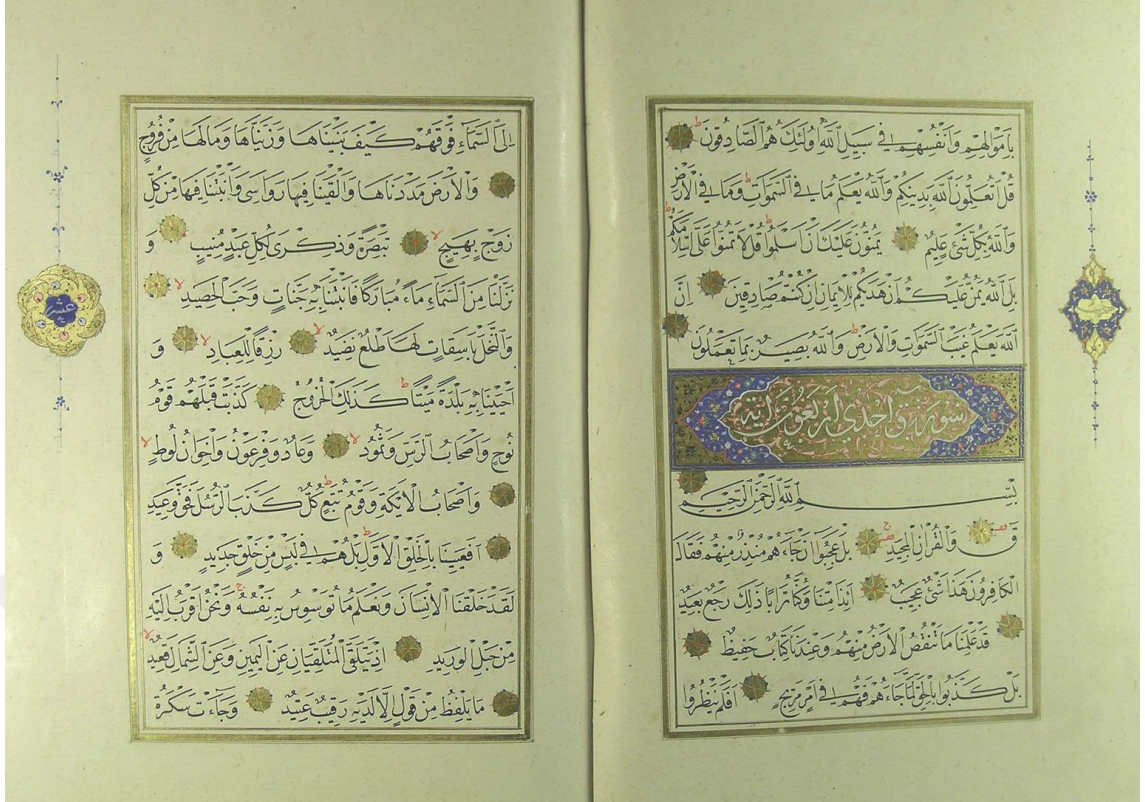 بِاَمْوَالِهِمْ وَاَنْفُسِهِمْ فِي سَبِيلِ اللّٰهِ اُولٰئِكَ هُمُ الصَّادِقُونَ
قُلْ اَتُعَلِّمُونَ اللّٰهَ بِدِينِكُمْ وَاللّٰهُ يَعْلَمُ مَا فِي السَّمٰوَاتِ وَمَا فِي الْاَرْضِ
وَاللّٰهُ بِكُلِّ شَيْءٍ عَلِيمٌ يَمُنُّونَ عَلَيْكَ اَنْ اَسْلَمُوا قُلْ لَا تَمُنُّوا عَلَيَّ اِسْلَامَكُمْ
بَلِ اللّٰهُ يَمُنُّ عَلَيْكُمْ اَنْ هَدٰيكُمْ لِلْاِيمَانِ اِنْ كُنْتُمْ صَادِقِينَ اِنَّ
اللّٰهَ يَعْلَمُ غَيْبَ السَّمٰوَاتِ وَالْاَرْضِ وَاللّٰهُ بَصِيرٌ بِمَا تَعْمَلُونَ
سورة ق احدي اربعون اية
بِسْمِ اللّٰهِ الرَّحْمٰنِ الرَّحِيمِ
قٓ وَالْقُرْاٰنِ الْمَجِيدِ بَلْ عَجِبُوا اَنْ جَاءَهُمْ مُنْذِرٌ مِنْهُمْ فَقَالَ
الْكَافِرُونَ هٰذَا شَيْءٌ عَجِيبٌ اَئِذَا مِتْنَا وَكُنَّا تُرَابًا ذٰلِكَ رَجْعٌ بَعِيدٌ
قَدْ عَلِمْنَا مَا تَنْقُصُ الْاَرْضُ مِنْهُمْ وَعِنْدَنَا كِتَابٌ حَفِيظٌ
بَلْ كَذَّبُوا بِالْحَقِّ لَمَّا جَاءَهُمْ فَهُمْ فِي اَمْرٍ مَرِيجٍ اَفَلَمْ يَنْظُرُوا
اِلَى السَّمَاءِ فَوْقَهُمْ كَيْفَ بَنَيْنَاهَا وَزَيَّنَّاهَا وَمَا لَهَا مِنْ فُرُوجٍ
وَالْاَرْضَ مَدَدْنَاهَا وَاَلْقَيْنَا فِيهَا رَوَاسِيَ وَاَنْبَتْنَا فِيهَا مِنْ كُلِّ
زَوْجٍ بَهِيجٍ تَبْصِرَةً وَذِكْرٰى لِكُلِّ عَبْدٍ مُنِيبٍ وَ
نَزَّلْنَا مِنَ السَّمَاءِ مَاءً مُبَارَكًا فَاَنْبَتْنَا بِهِ جَنَّاتٍ وَحَبَّ الْحَصِيدِ
وَالنَّخْلَ بَاسِقَاتٍ لَهَا طَلْعٌ نَضِيدٌ رِزْقًا لِلْعِبَادِ وَ
اَحْيَيْنَا بِهِ بَلْدَةً مَيْتًا كَذٰلِكَ الْخُرُوجُ كَذَّبَتْ قَبْلَهُمْ قَوْمُ
نُوحٍ وَاَصْحَابُ الرَّسِّ وَثَمُودُ وَعَادٌ وَفِرْعَوْنُ وَاِخْوَانُ لُوطٍ
وَاَصْحَابُ الْاَيْكَةِ وَقَوْمُ تُبَّعٍ كُلٌّ كَذَّبَ الرُّسُلَ فَحَقَّ وَعِيدِ
اَفَعَيِينَا بِالْخَلْقِ الْاَوَّلِ بَلْ هُمْ فِي لَبْسٍ مِنْ خَلْقٍ جَدِيدٍ وَ
لَقَدْ خَلَقْنَا الْاِنْسَانَ وَنَعْلَمُ مَا تُوَسْوِسُ بِهِ نَفْسُهُ وَنَحْنُ اَقْرَبُ اِلَيْهِ
مِنْ حَبْلِ الْوَرِيدِ اِذْ يَتَلَقَّى الْمُتَلَقِّيَانِ عَنِ الْيَمِينِ وَعَنِ الشِّمَالِ قَعِيدٌ
مَا يَلْفِظُ مِنْ قَوْلٍ اِلَّا لَدَيْهِ رَقِيبٌ عَتِيدٌ وَجَاءَتْ سَكْرَةُ
عشر